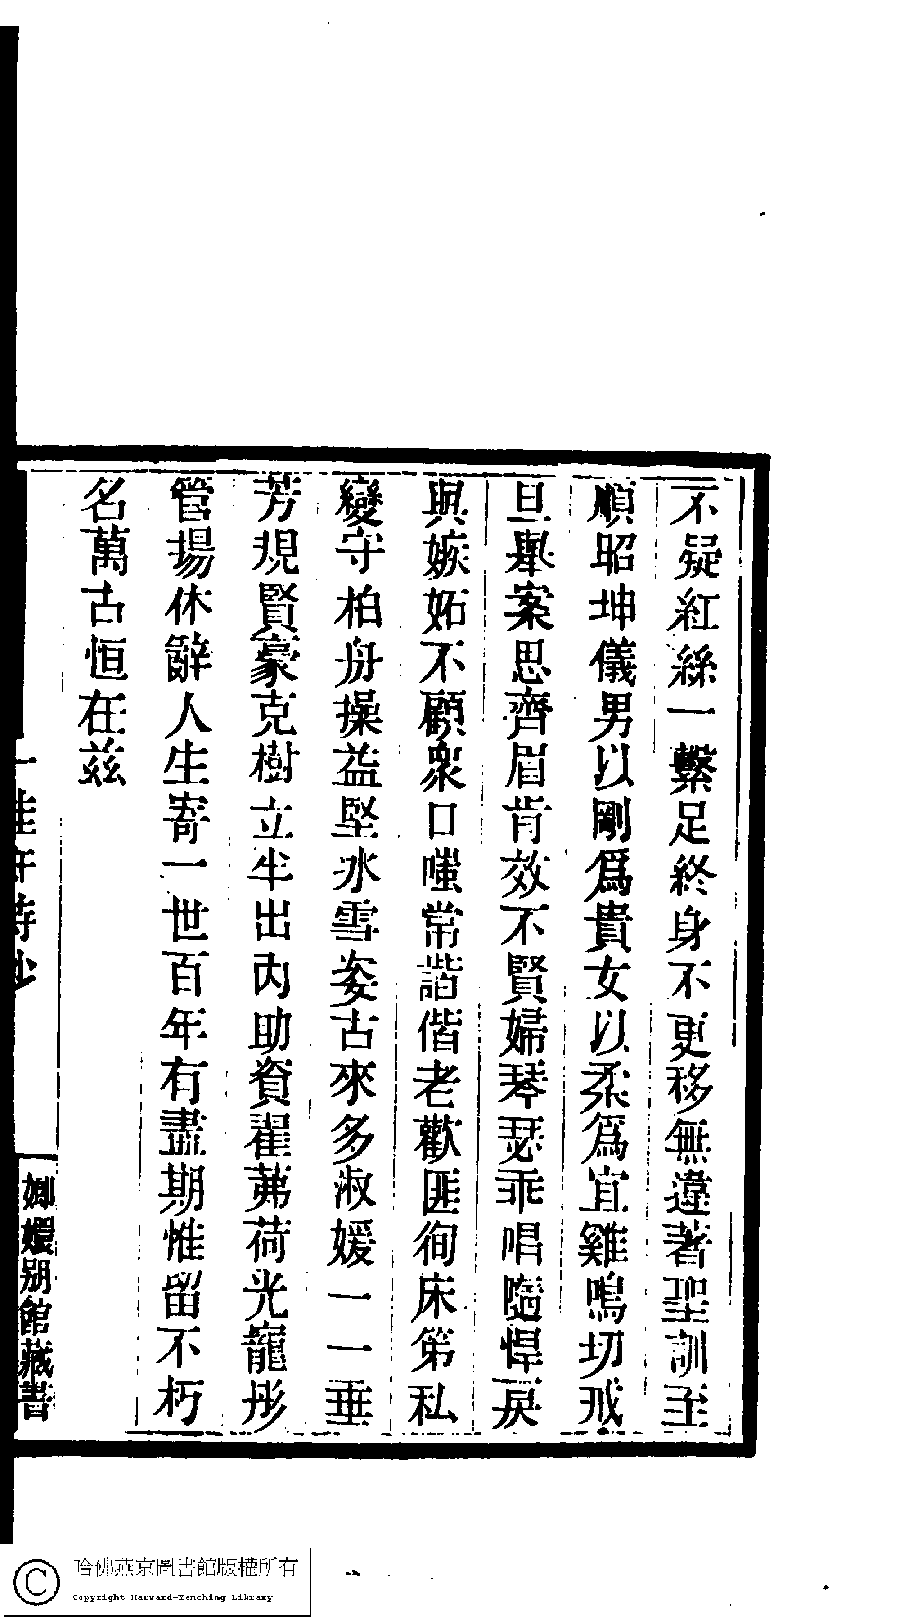 不疑紅絲一繫足終身不更移無違著聖訓至
順昭坤儀男以剛爲貴女以柔爲宜雞鳴切戒
旦舉案思齊眉肯效不賢婦琴瑟乖唱隨悍戾
與嫉妬不顧衆口嗤常諧偕老歡匪徇床笫私
變守柏舟操益堅氷雪姿古來多淑媛一一垂
芳規賢豪克樹立半出內助資翟茀荷光寵彤
管揚休辭人生寄一世百年有盡期惟留不朽
名萬古恒在兹
嬛別館藏書
哈佛燕京圖書館版權所有
Copyright Harvard-Yenching Library